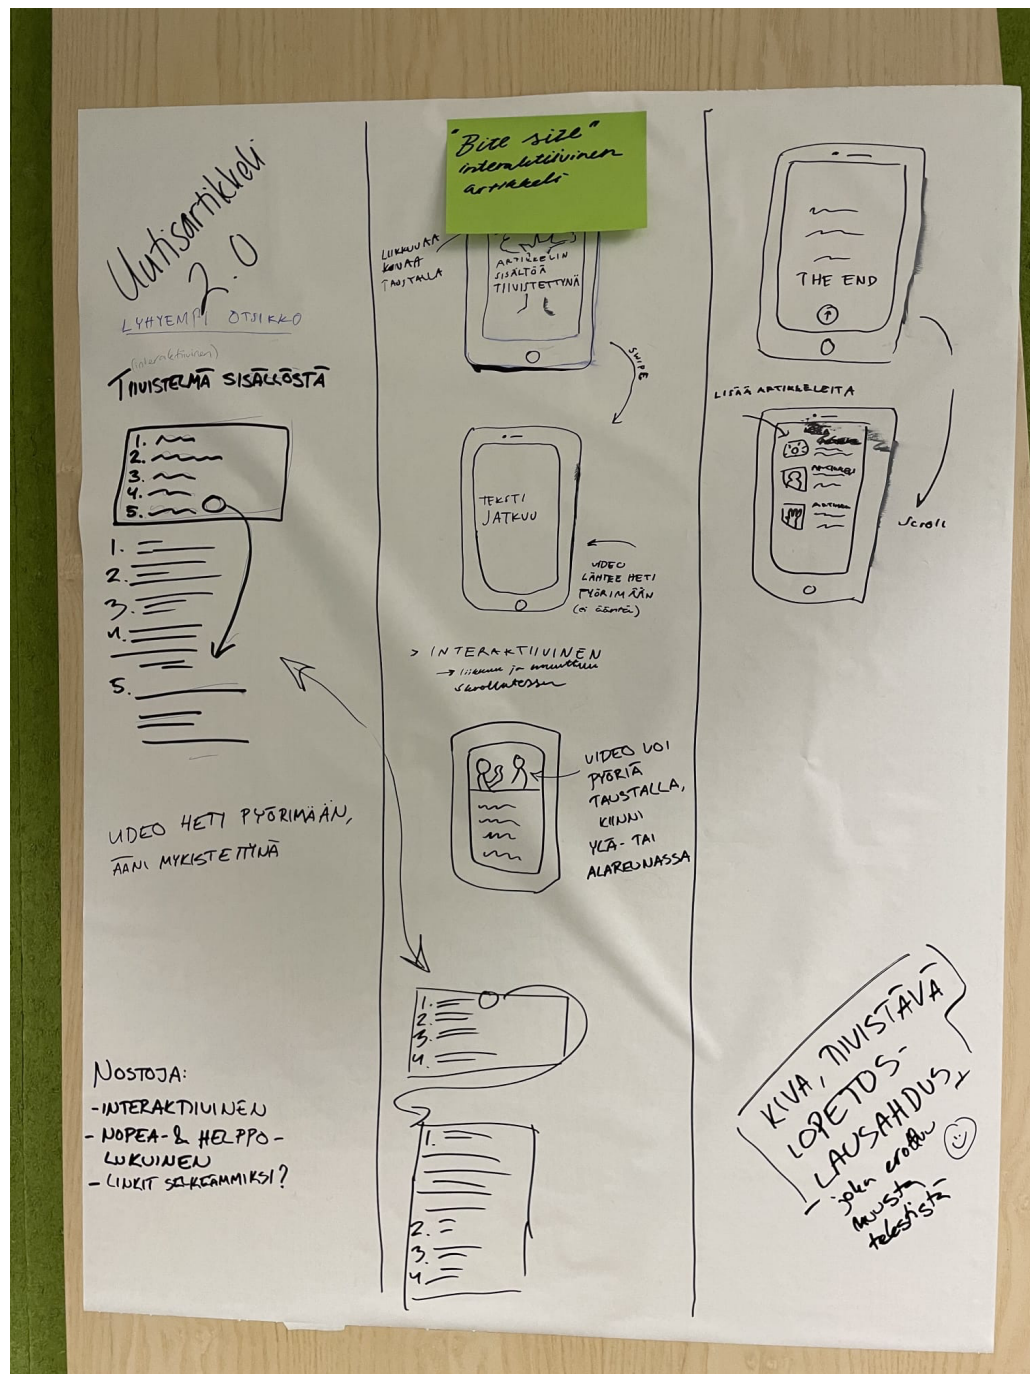 Uutisartikkeli
2.0
LYHYEMPI OTSIKKO
(interaktiivinen)
TIIVISTELMÄ SISÄLLÖSTÄ
1.
2.
3.
4.
5.
1.
2.
3.
4.
5.
VIDEO HETI PYÖRIMÄÄN,
ÄÄNI MYKISTETTYNÄ
NOSTOJA:
- INTERAKTIIVINEN
- NOPEA- & HELPPO-
LUKUINEN
- LINKIT SELKEÄMMIKSI?
"Bite size"
interaktiivinen
artikkeli
LIIKKUVAA
KUVAA
TAUSTALLA
ARTIKKELIN
SISÄLTÖÄ
TIIVISTETTYNÄ
SWIPE
TEKSTI
JATKUU
VIDEO
LÄHTEE HETI
PYÖRIMÄÄN
(ei ääntä)
> INTERAKTIIVINEN
→ liikkuu ja muuttuu
skrollatessa
VIDEO VOI
PYÖRIÄ
TAUSTALLA,
KIINNI
YLÄ- TAI
ALAREUNASSA
1.
2.
3.
4.
1.
2.
3.
4.
THE END
LISÄÄ ARTIKKELEITA
ARTIKKELI
Scroll
KIVA, TIIVISTÄVÄ
LOPETUS-
LAUSAHDUS,
joka erottuu
muusta
tekstistä